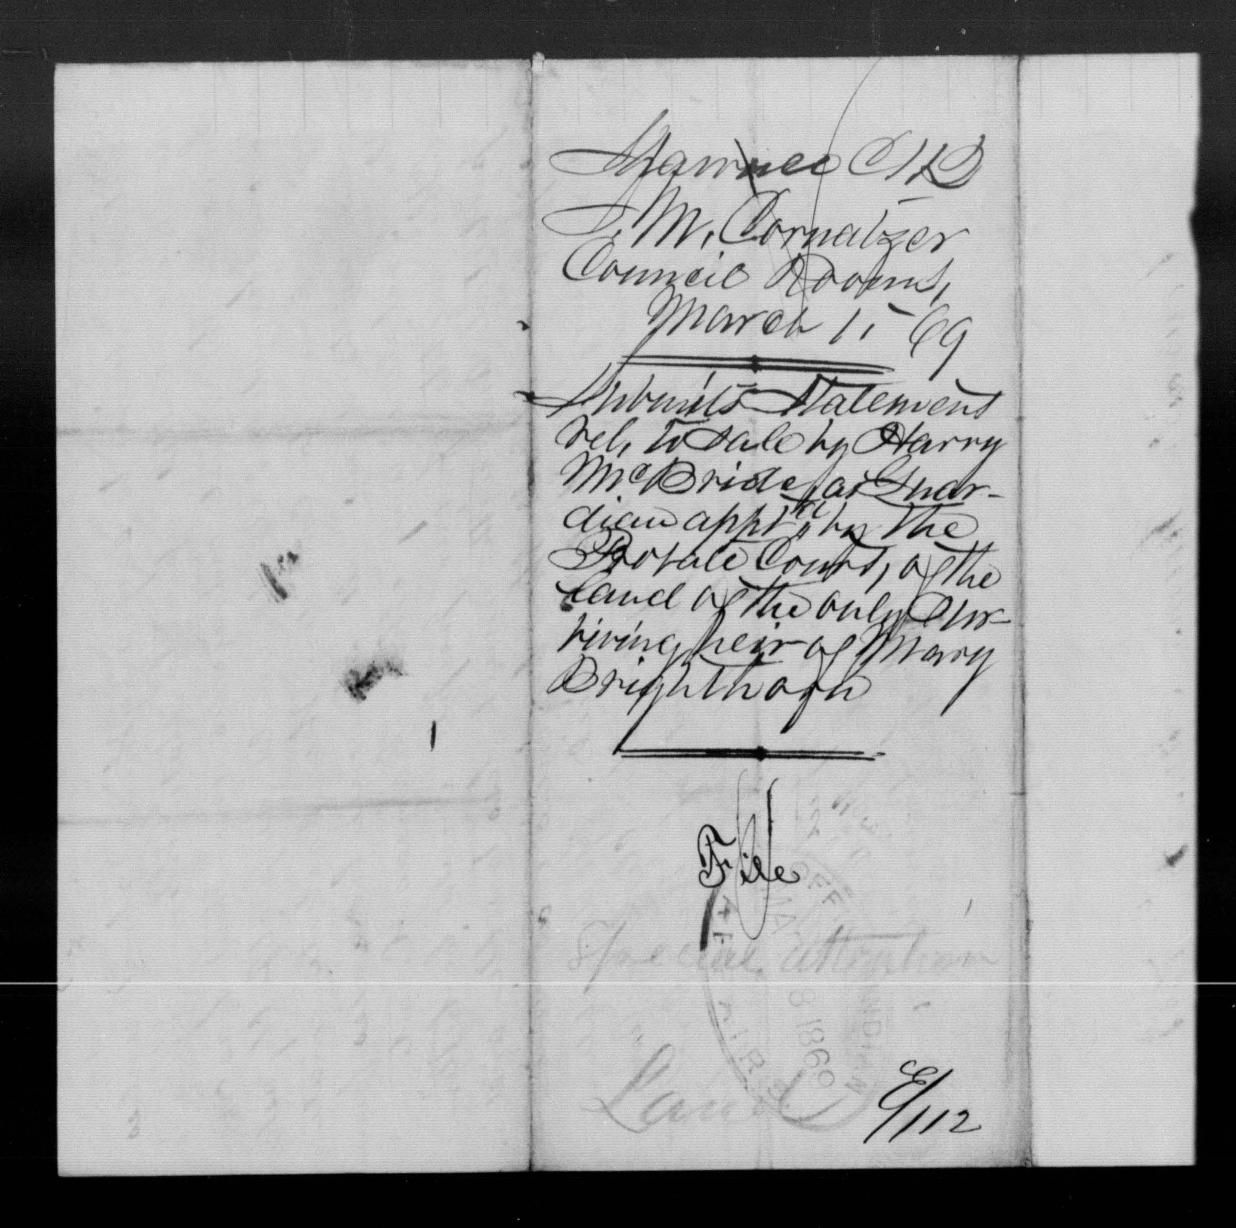 Shawnee
S. M. Cornatzer
Council Rooms,
March 1, 69
Submits Statement
rel, to sale by Harry
McBride, as Guar-
dian appt'd by the
Probate Court, of the
land of the only Sur-
viving heir of Mary
Brighthorn
File
Special attention
OFFICE INDIAN AFFAIRS
MAR 8 1869
Land
E/112